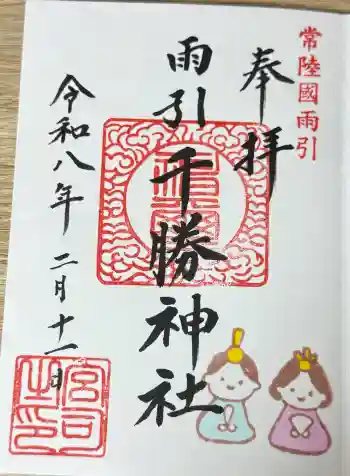 常陸國雨引
奉拝
雨引千勝神社
令和八年 二月十一日
宮司之印